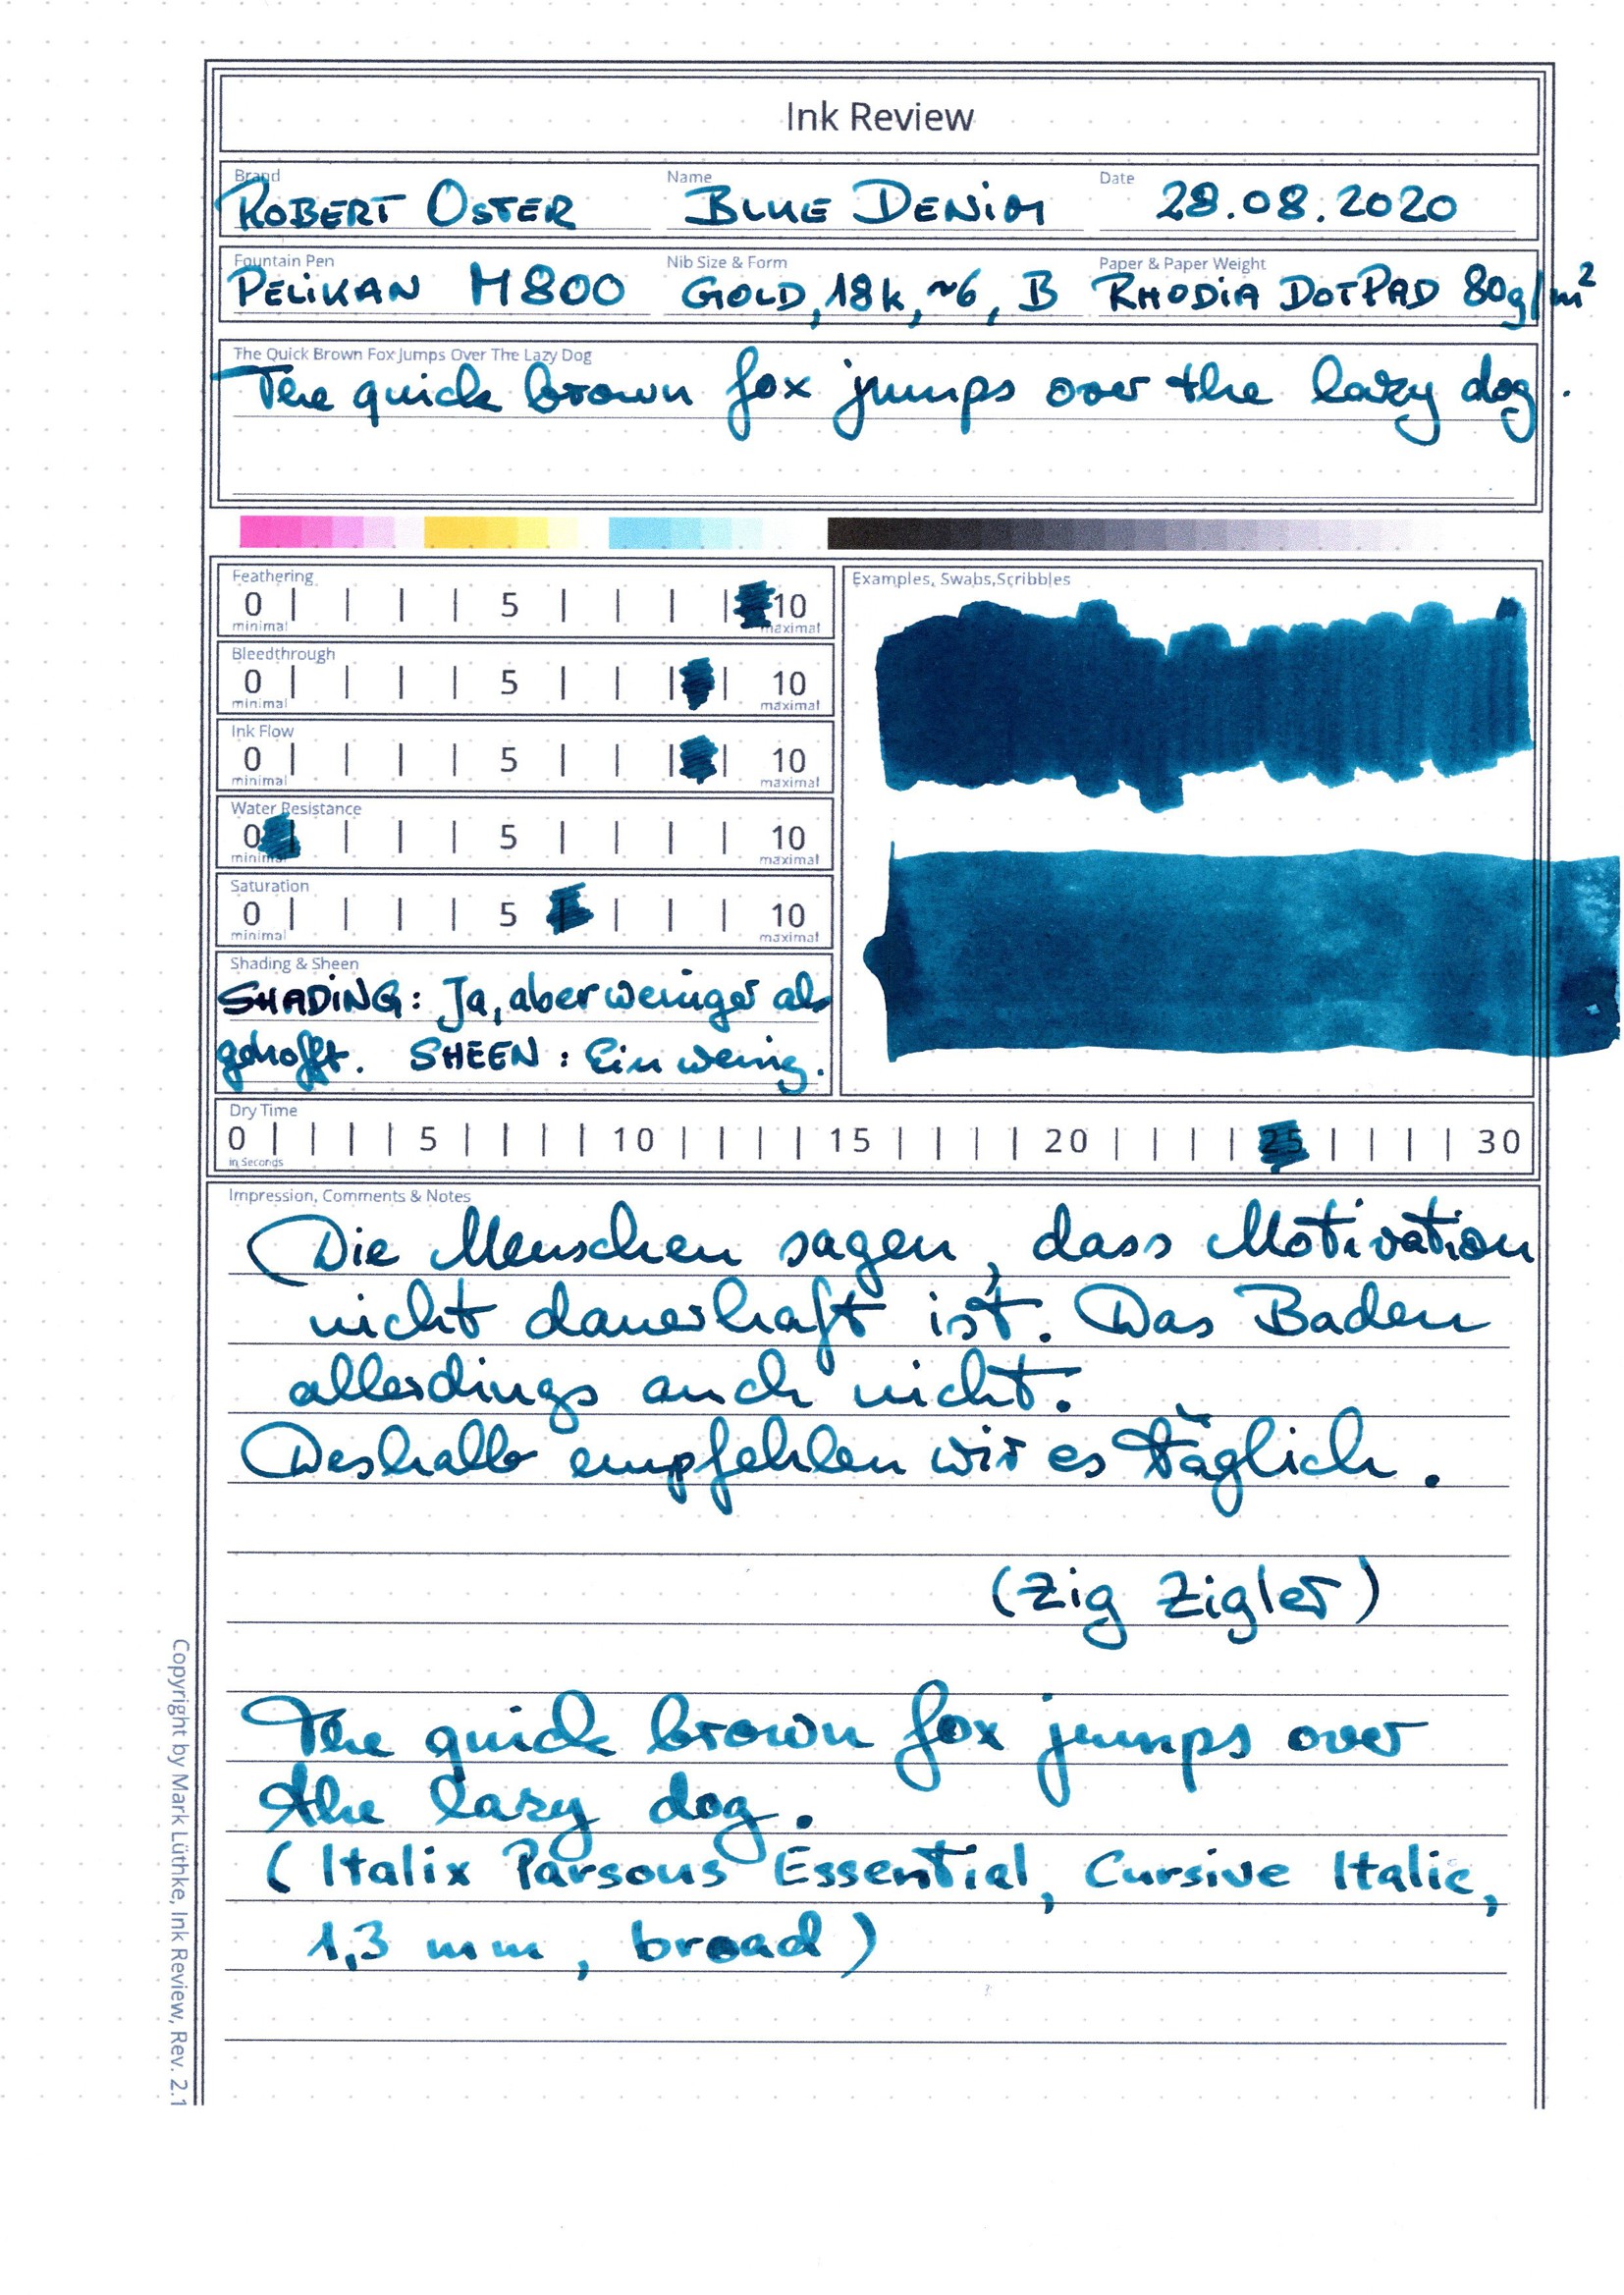 Ink Review
Brand Name Date
ROBERT OSTER BLUE DENIM 28.08.2020
Fountain Pen Nib Size & Form Paper & Paper Weight
PELIKAN M800 GOLD, 18k, ~6, B RHODIA DOTPAD 80g/m²
The Quick Brown Fox Jumps Over The Lazy Dog
The quick brown fox jumps over the lazy dog.
Feathering
0 5 10
minimal maximal
Examples, Swabs, Scribbles
Bleedthrough
0 5 10
minimal maximal
Ink Flow
0 5 10
minimal maximal
Water Resistance
0 5 10
minimal maximal
Saturation
0 5 10
minimal maximal
Shading & Sheen
SHADING: Ja, aber weniger als
gehofft. SHEEN: Ein wenig.
Dry Time
0 5 10 15 20 25 30
in Seconds
Impression, Comments & Notes
Die Menschen sagen, dass Motivation
nicht dauerhaft ist. Das Baden
allerdings auch nicht.
Deshalb empfehlen wir es täglich.
(Zig Zigler)
The quick brown fox jumps over
the lazy dog.
(Italix Parsons Essential, Cursive Italic,
1,3 mm, broad)
Copyright by Mark Lüthke, Ink Review, Rev. 2.1